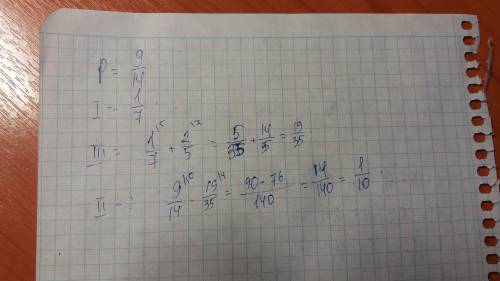 P = 9/14
I - 1/7
III = 1/7 + 2/5 = 5/35 + 14/35 = 19/35
II - : 9/14 - 19/35 = 90-76/140 = 14/140 = 1/10.